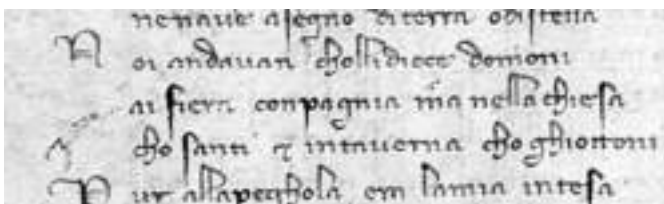 ne nave a segno di terra o distella
Noi andavan cholli diece domoni
ai fiera conpagnia ma nella chiesa
cho santi ⁊ in taverna cho ghiottoni
Pur alla peghola em la mia intesa